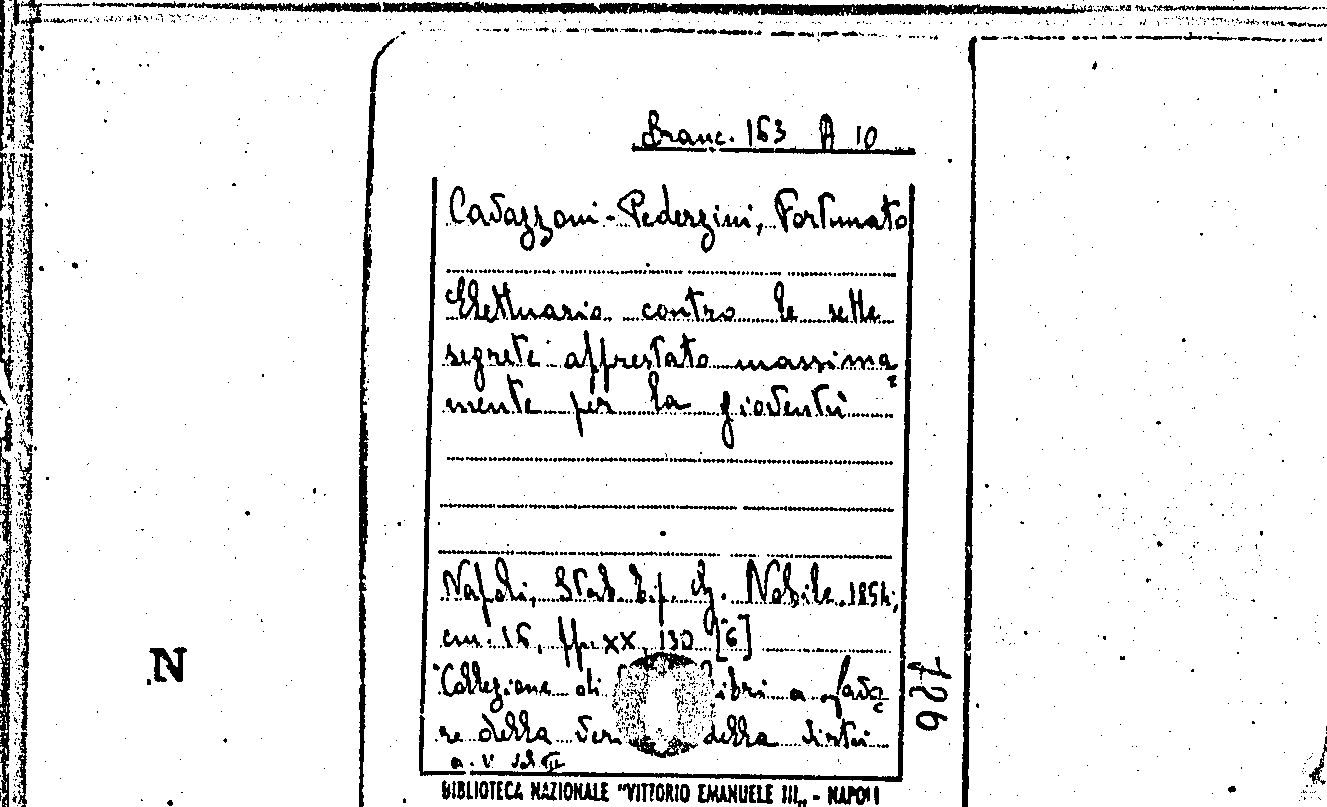 Branc. 163 A 10
Cavazzoni-Pederzini, Fortunato
Elettuario contro le sette
segrete apprestato massima=
mente per la gioventù
Napoli, Stab. tip. G. Nobile 1854,
cm. 16, pp. XX, 130 [6]
Collezione di libri a favo=
re della della virtù
a. V vol. III
BIBLIOTECA NAZIONALE "VITTORIO EMANUELE III„ - NAPOLI
N
126